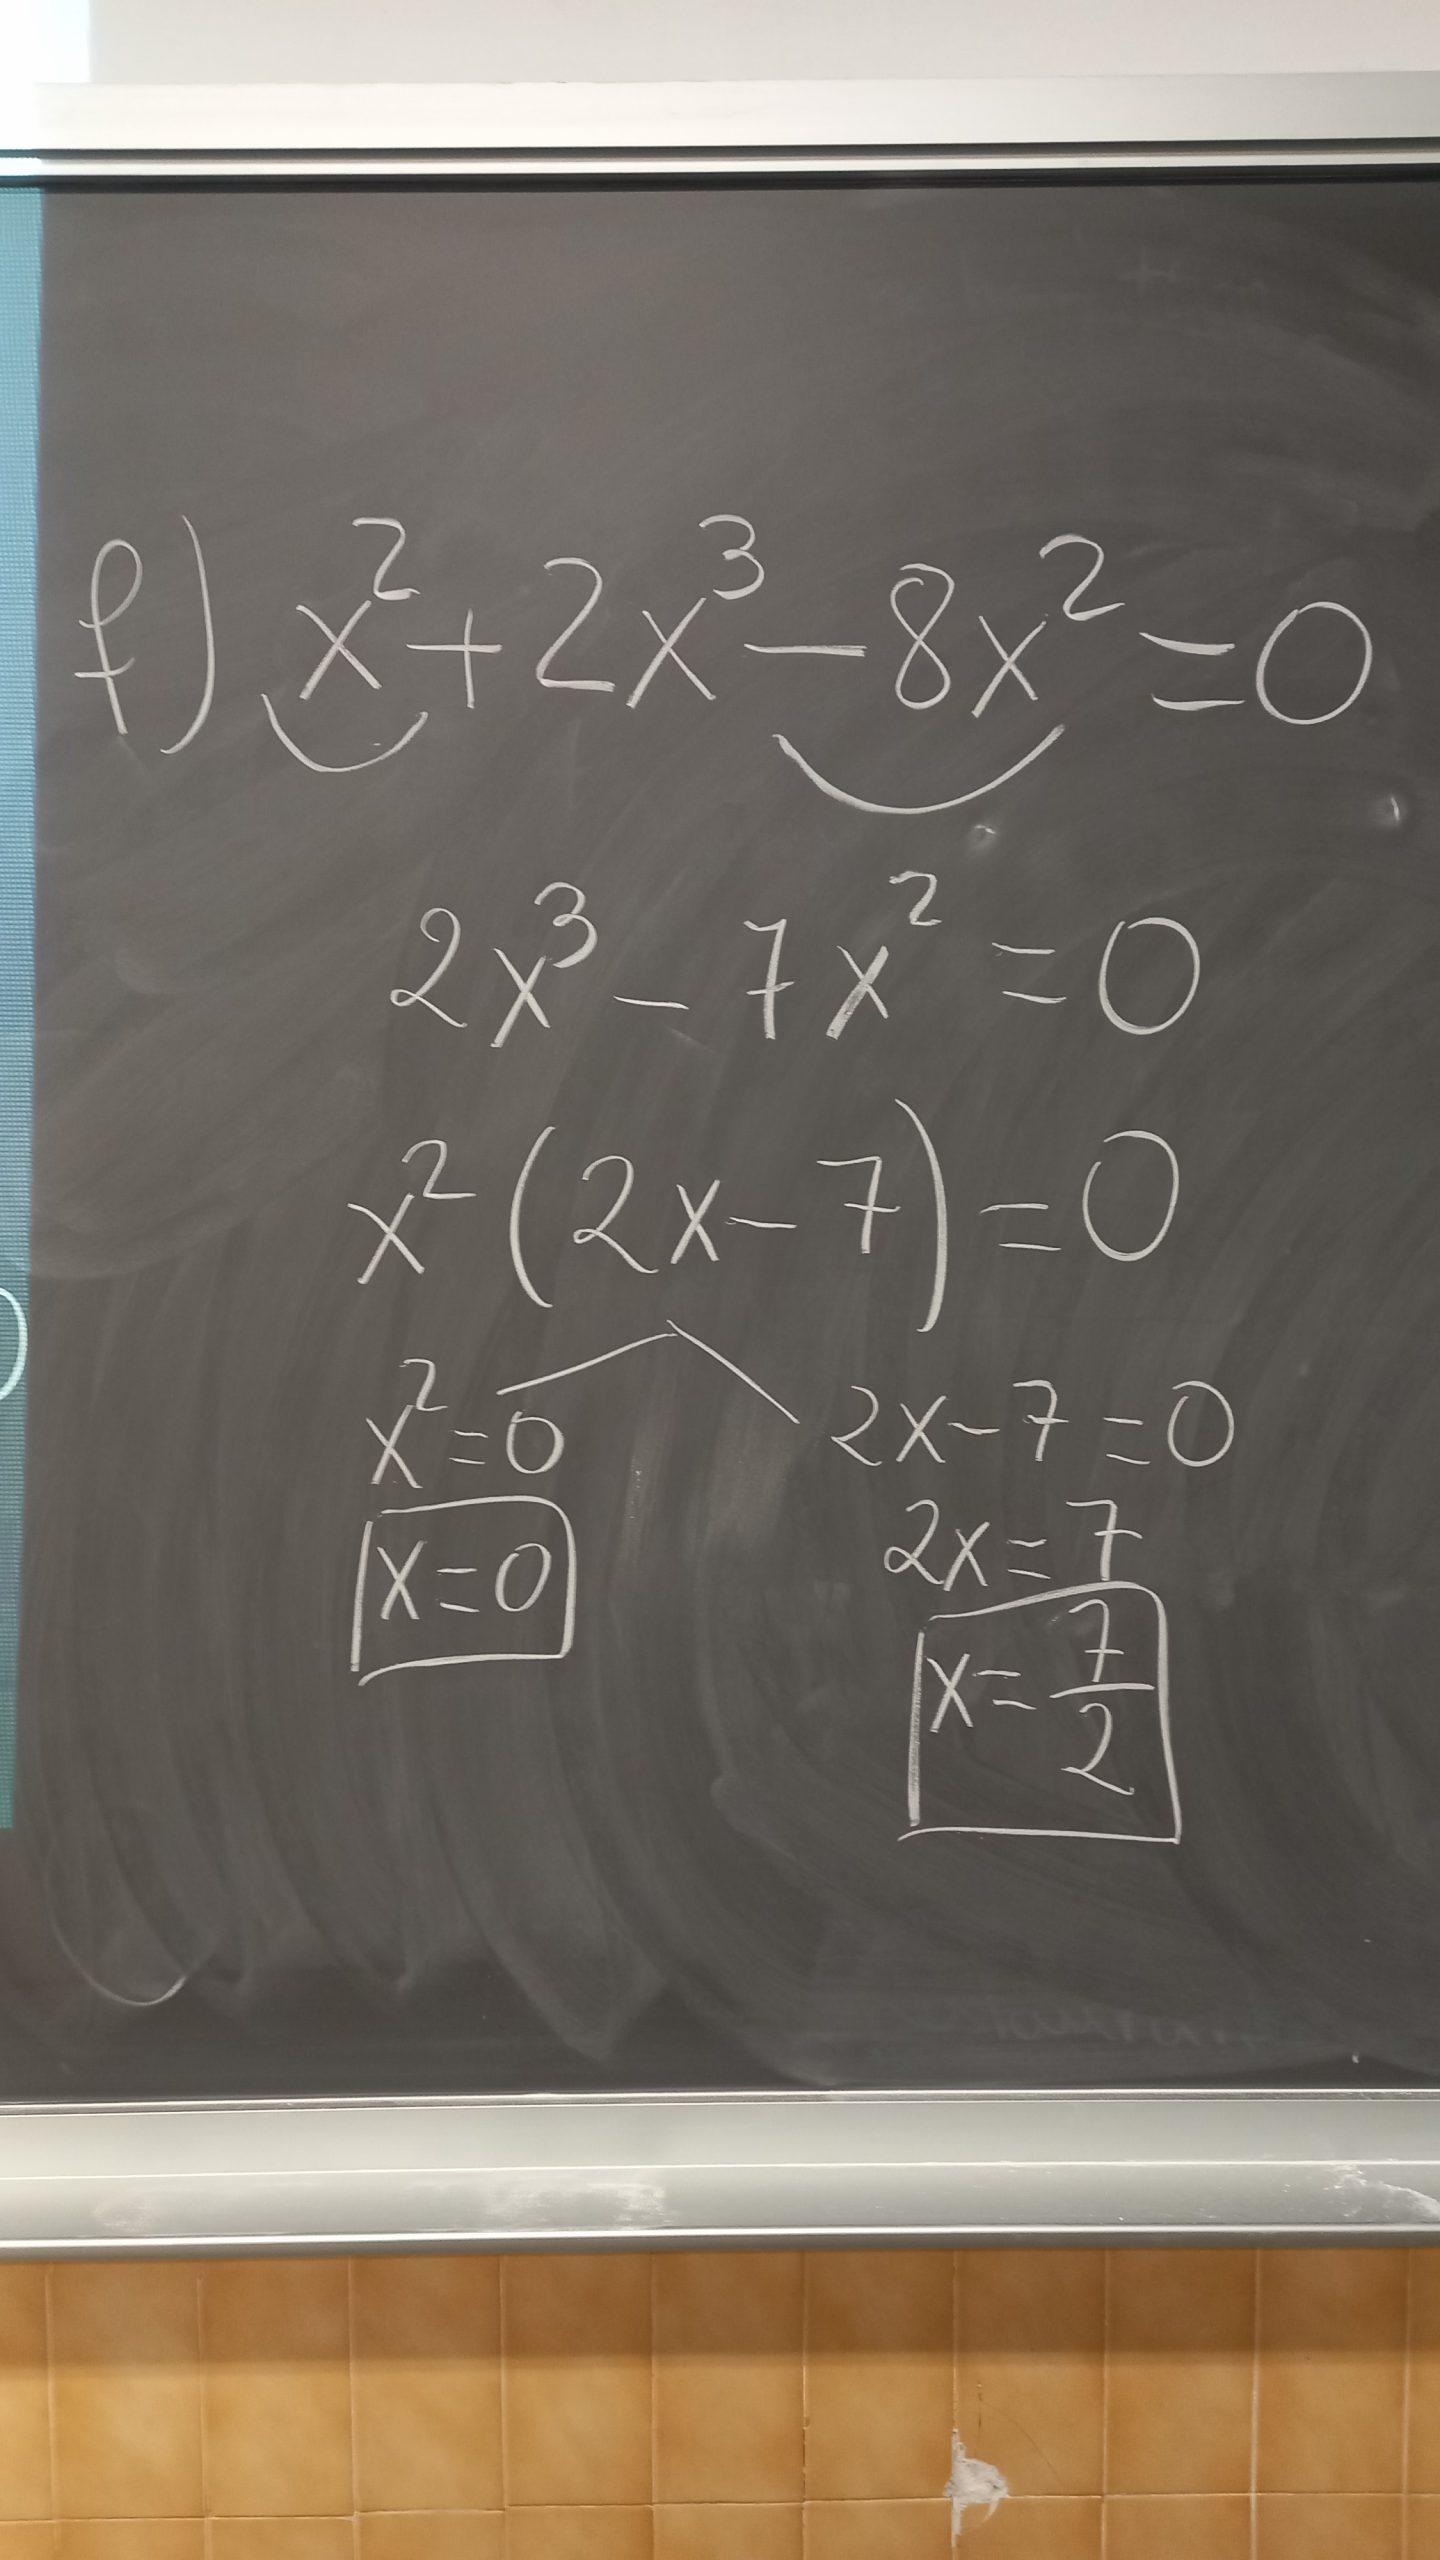 f) x² + 2x³ - 8x² = 0
2x³ - 7x² = 0
x² (2x - 7) = 0
x² = 0
x = 0
2x - 7 = 0
2x = 7
x = 7/2